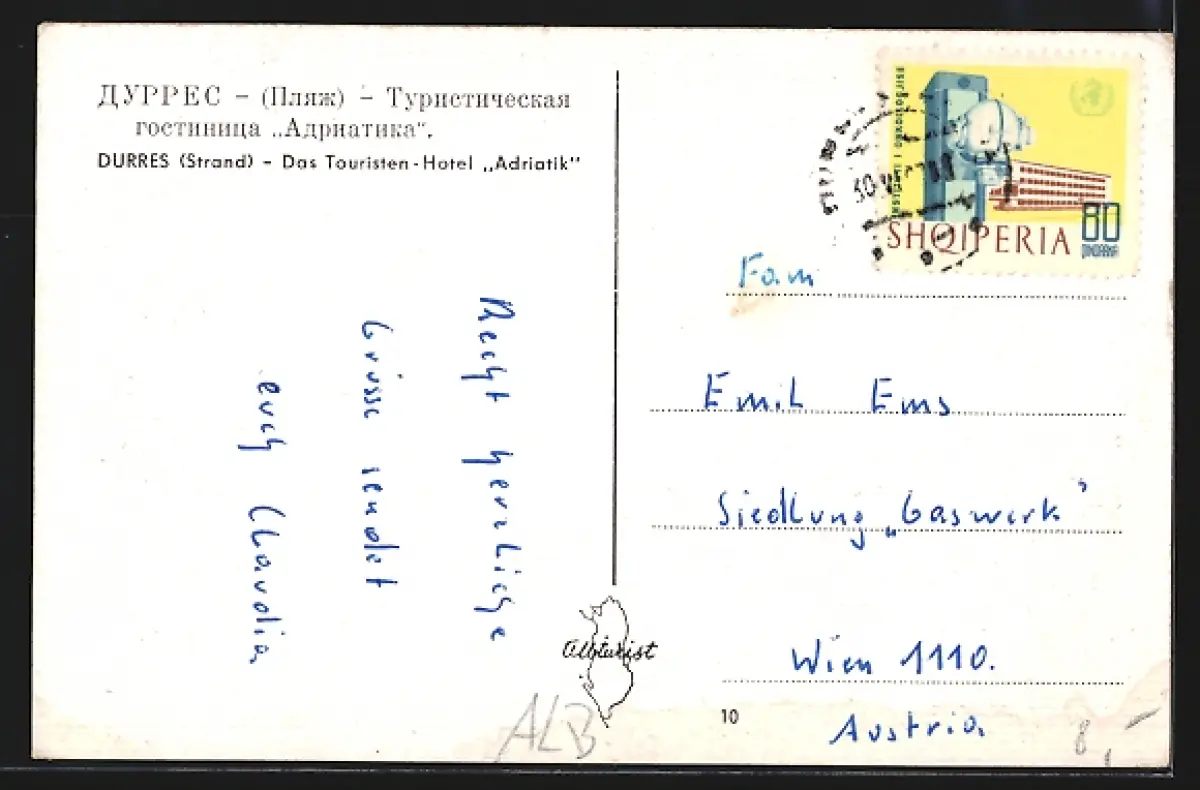 ДУРРЕС – (Пляж) – Туристическая
гостиница „Адриатика“.
DURRES (Strand) – Das Touristen-Hotel „Adriatik“
Recht herzliche
Grüsse sendet
euch Claudia
SHQIPERIA
80
Fam
Emil Ems
Siedlung „Gaswerk“
Wien 1110.
Austria
Albturist
10
ALB
8,–